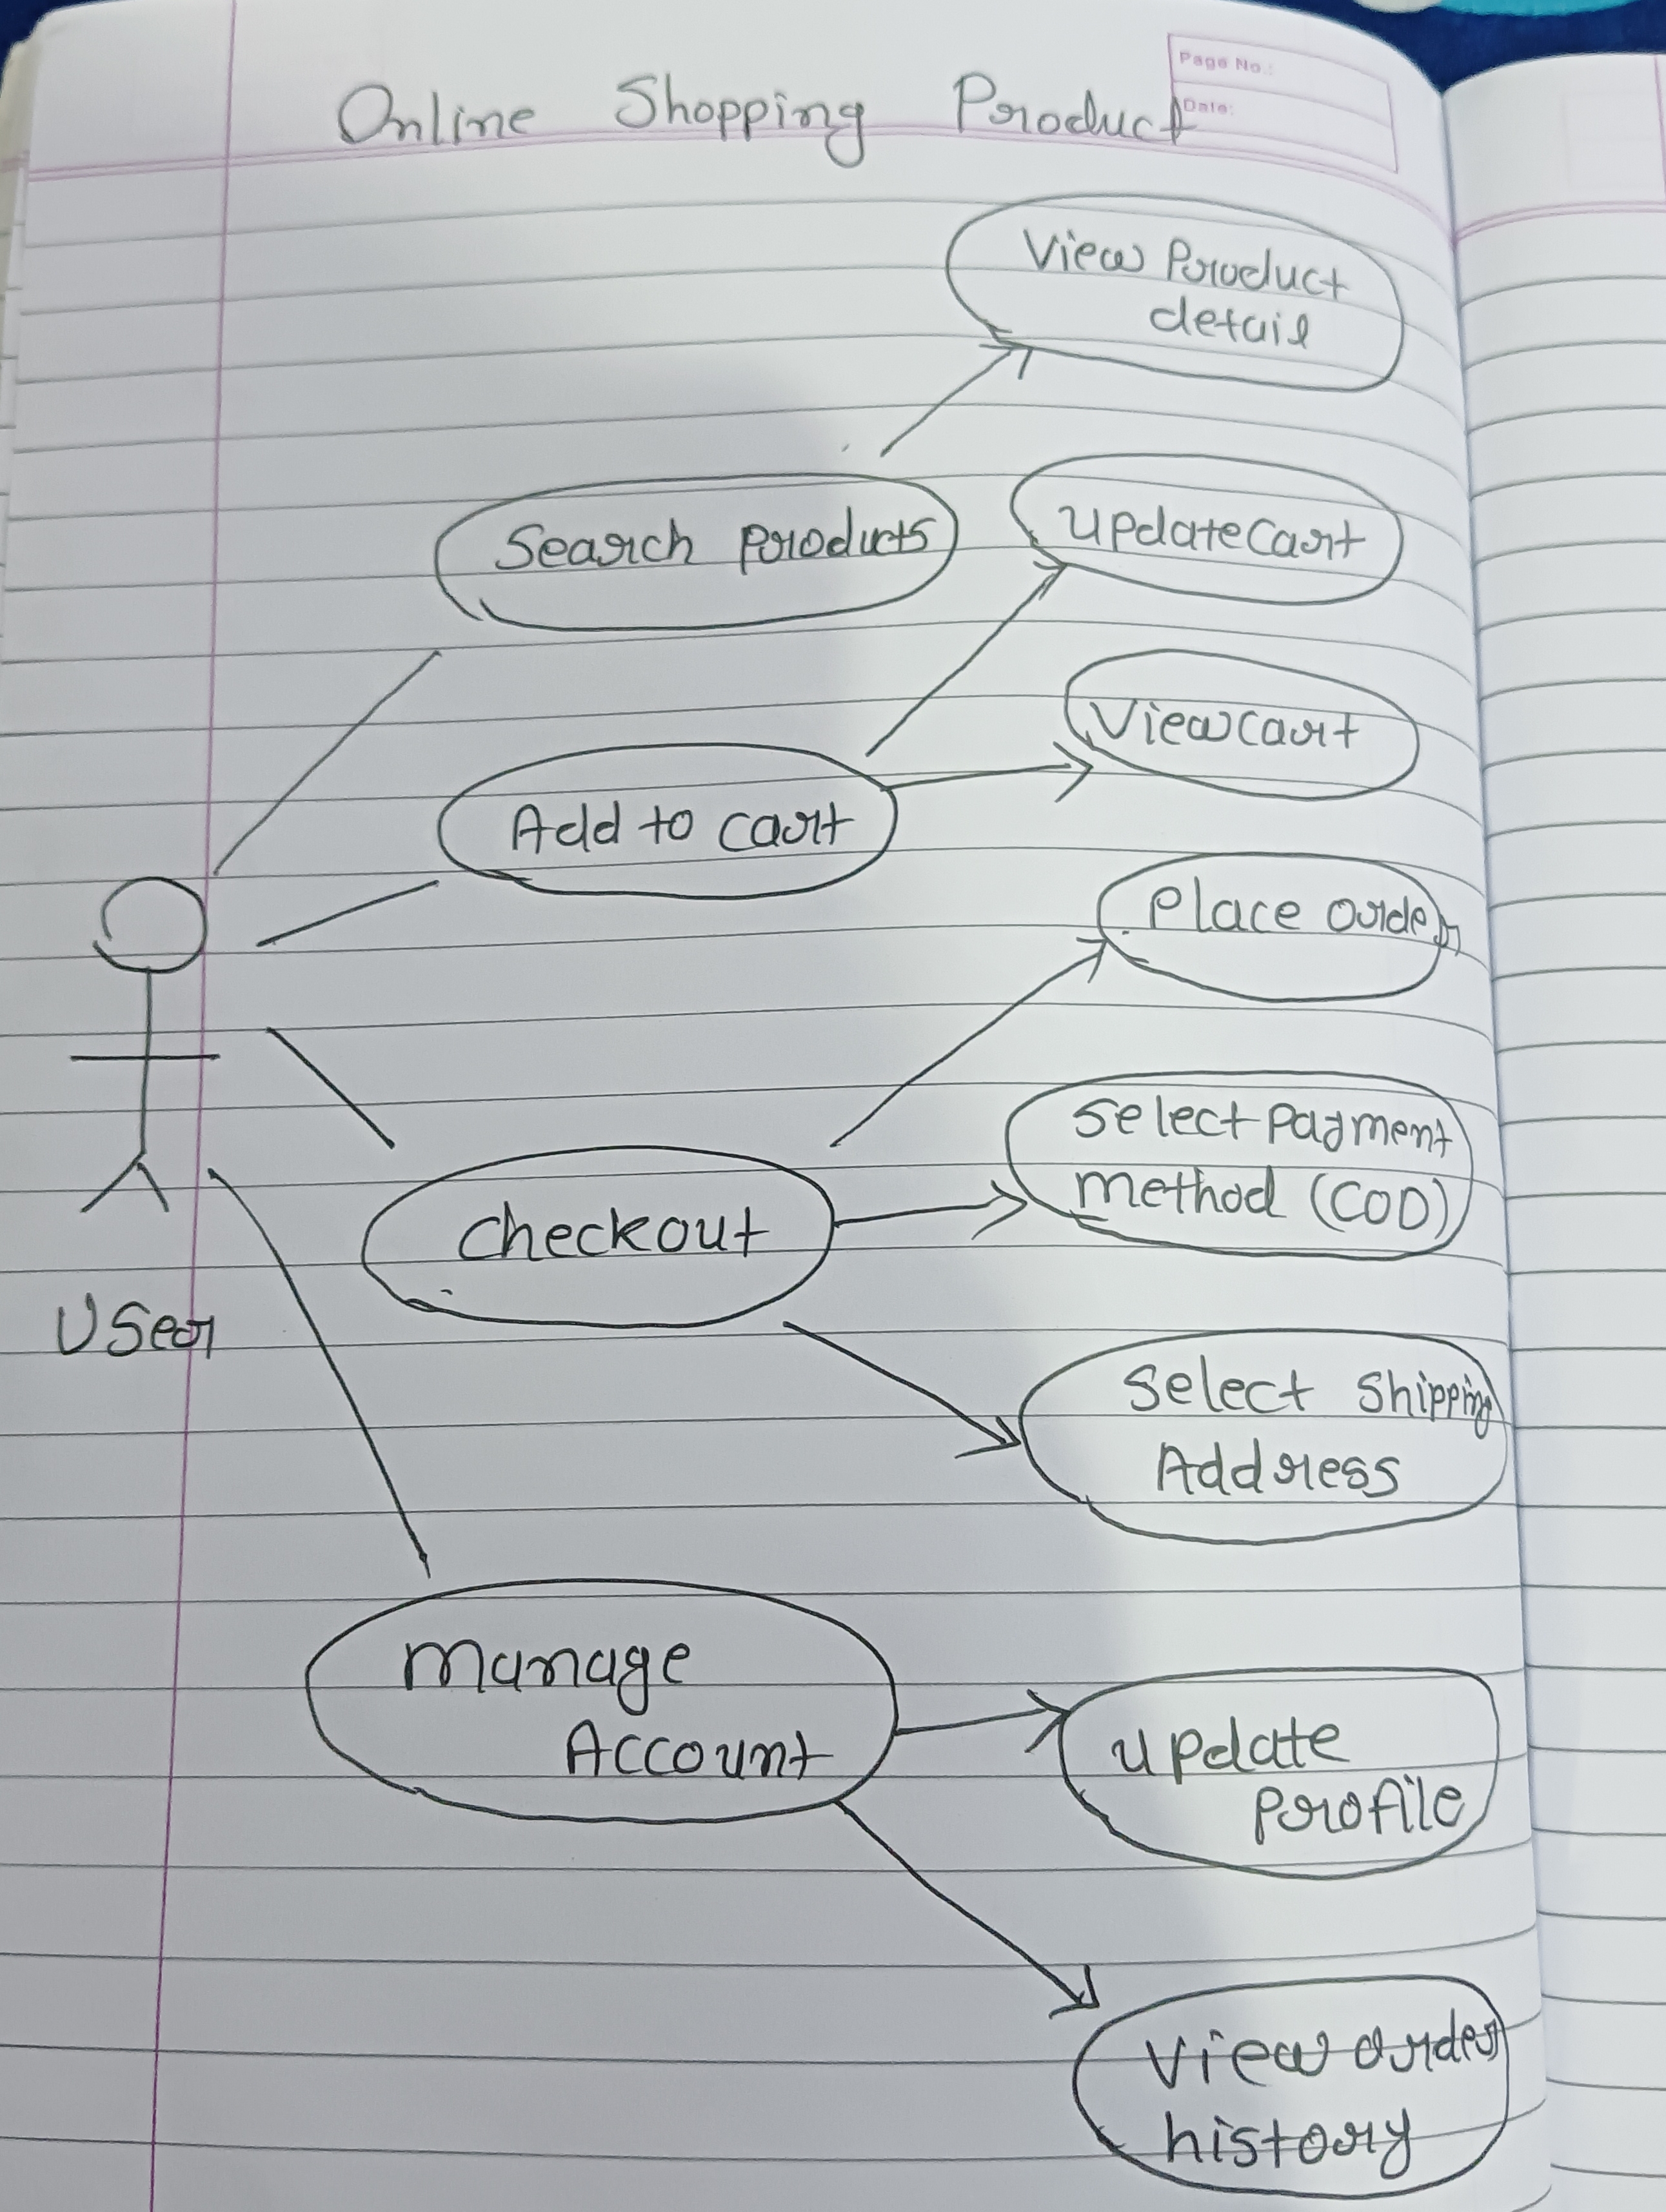 Page No.:
Date:
Online Shopping Product
View Product
detail
Search products
update cart
View cart
Add to cart
Place order
Select payment
method (COD)
checkout
User
Select Shipping
Address
manage
Account
update
profile
view order
history